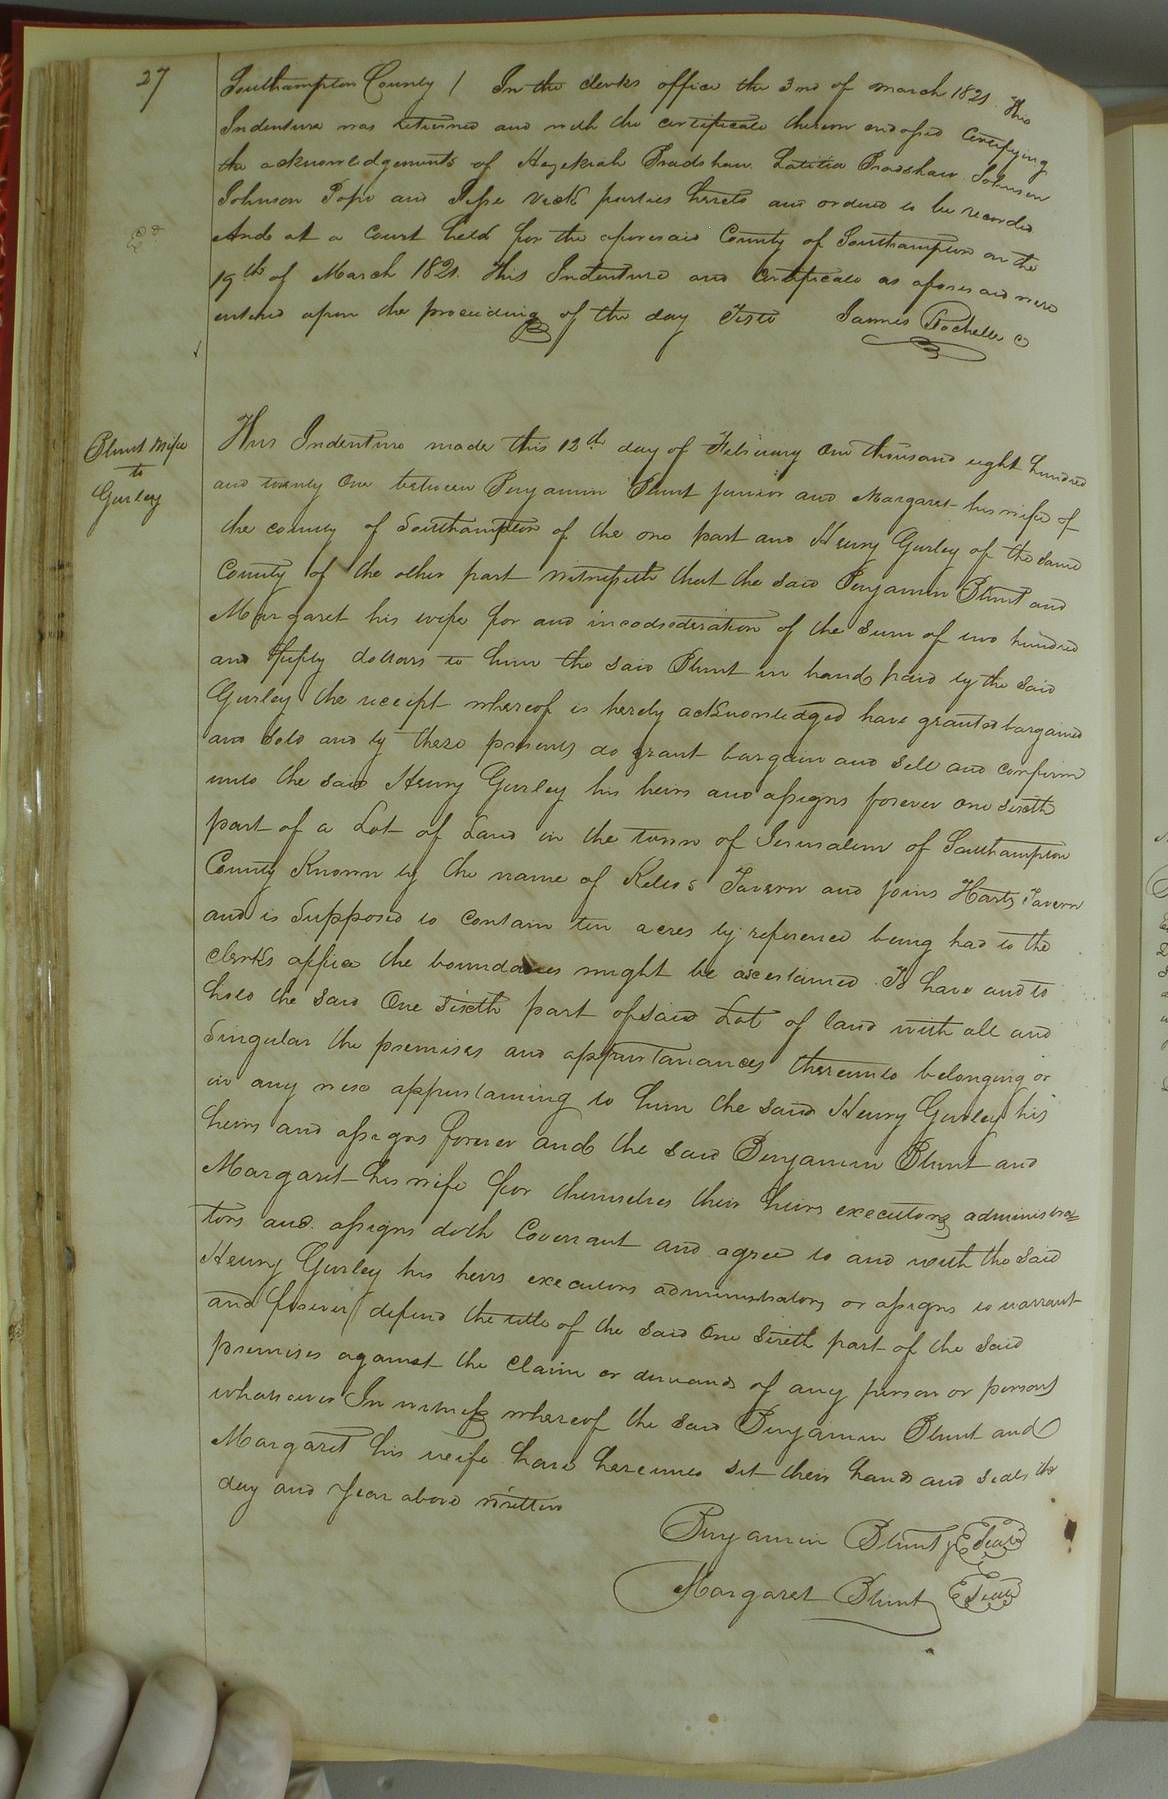 27
Southampton County / In the clerks office the 3nd of march 1821. This
Indenture was returned and with the certificate thereon endorsed Certifying
the acknowledgements of Hezekiah Bradshaw Latitia Bradshaw Johnson
Johnson Pope and Jesse Vick parties hereto and ordered to be recorded
And at a Court held for the aforesaid County of Southampton on the
19th of March 1821. This Indenture and Certificate as aforesaid were
entered upon the proceeding of the day Teste James Rochelle C
Exd
Blunt & Wife
to
Gurley
This Indenture made this 12th day of February One thousand eight hundred
and twenty One between Benjamin Blunt junior and Margaret his wife of
the county of Southampton of the one part and Henry Gurley of the same
County of the other part witnesseth that the said Benjamin Blunt and
Margaret his wife for and incodsoderation of the sum of two hundred
and fifty dollars to him the said Blunt in hand paid by the said
Gurley the receipt whereof is hereby acknowledged have granted bargained
and sold and by these presents do grant bargain and sell and confirm
unto the said Henry Gurley his heirs and assigns forever one sixth
part of a Lot of Land in the town of Jerusalem of Southampton
County Known by the name of Kellos Tavern and joins Harts Tavern
and is Supposed to contain ten acres by reference being had to the
clerks office the boundaries might be ascertained To have and to
hold the said One Sixth part of said Lot of land with all and
Singular the premises and appurtanances thereunto belonging or
in any wise appurtaining to him the said Henry Gurley his
heirs and assigns forever and the said Benjamin Blunt and
Margaret his wife for themselves their heirs executors administra=
tors and assigns doth Covenant and agree to and with the said
Henry Gurley his heirs executors administrators or assigns to warrant
and forever defend the title of the said One Sixth part of the said
premises against the Claim or demands of any person or persons
whatsoever In witness whereof the said Benjamin Blunt and
Margaret his wife have hereunto set their hands and seals the
day and year above written
Benjamin Blunt jr Seal
Margaret Blunt Seal